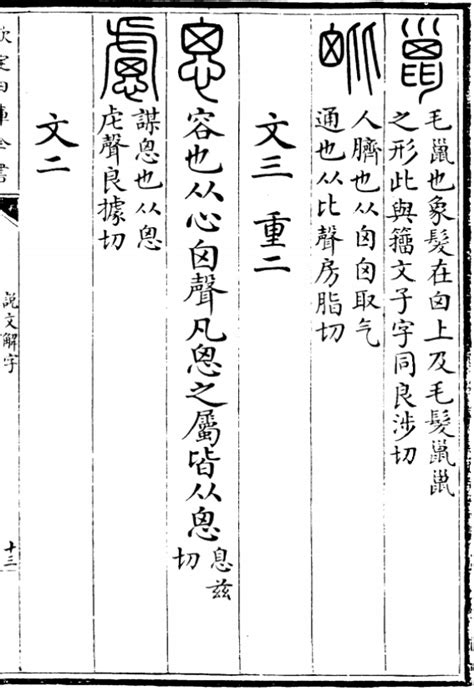 毛巤也象髮在囟上及毛髮巤巤
之形此與籒文子字同良涉切
人臍也从囟囟取气
通也从比聲房脂切
文三 重二
容也从心囟聲凡恖之屬皆从恖息兹
切
謀恖也从恖
虍聲良據切
文二
欽定四庫全書
說文解字
十三